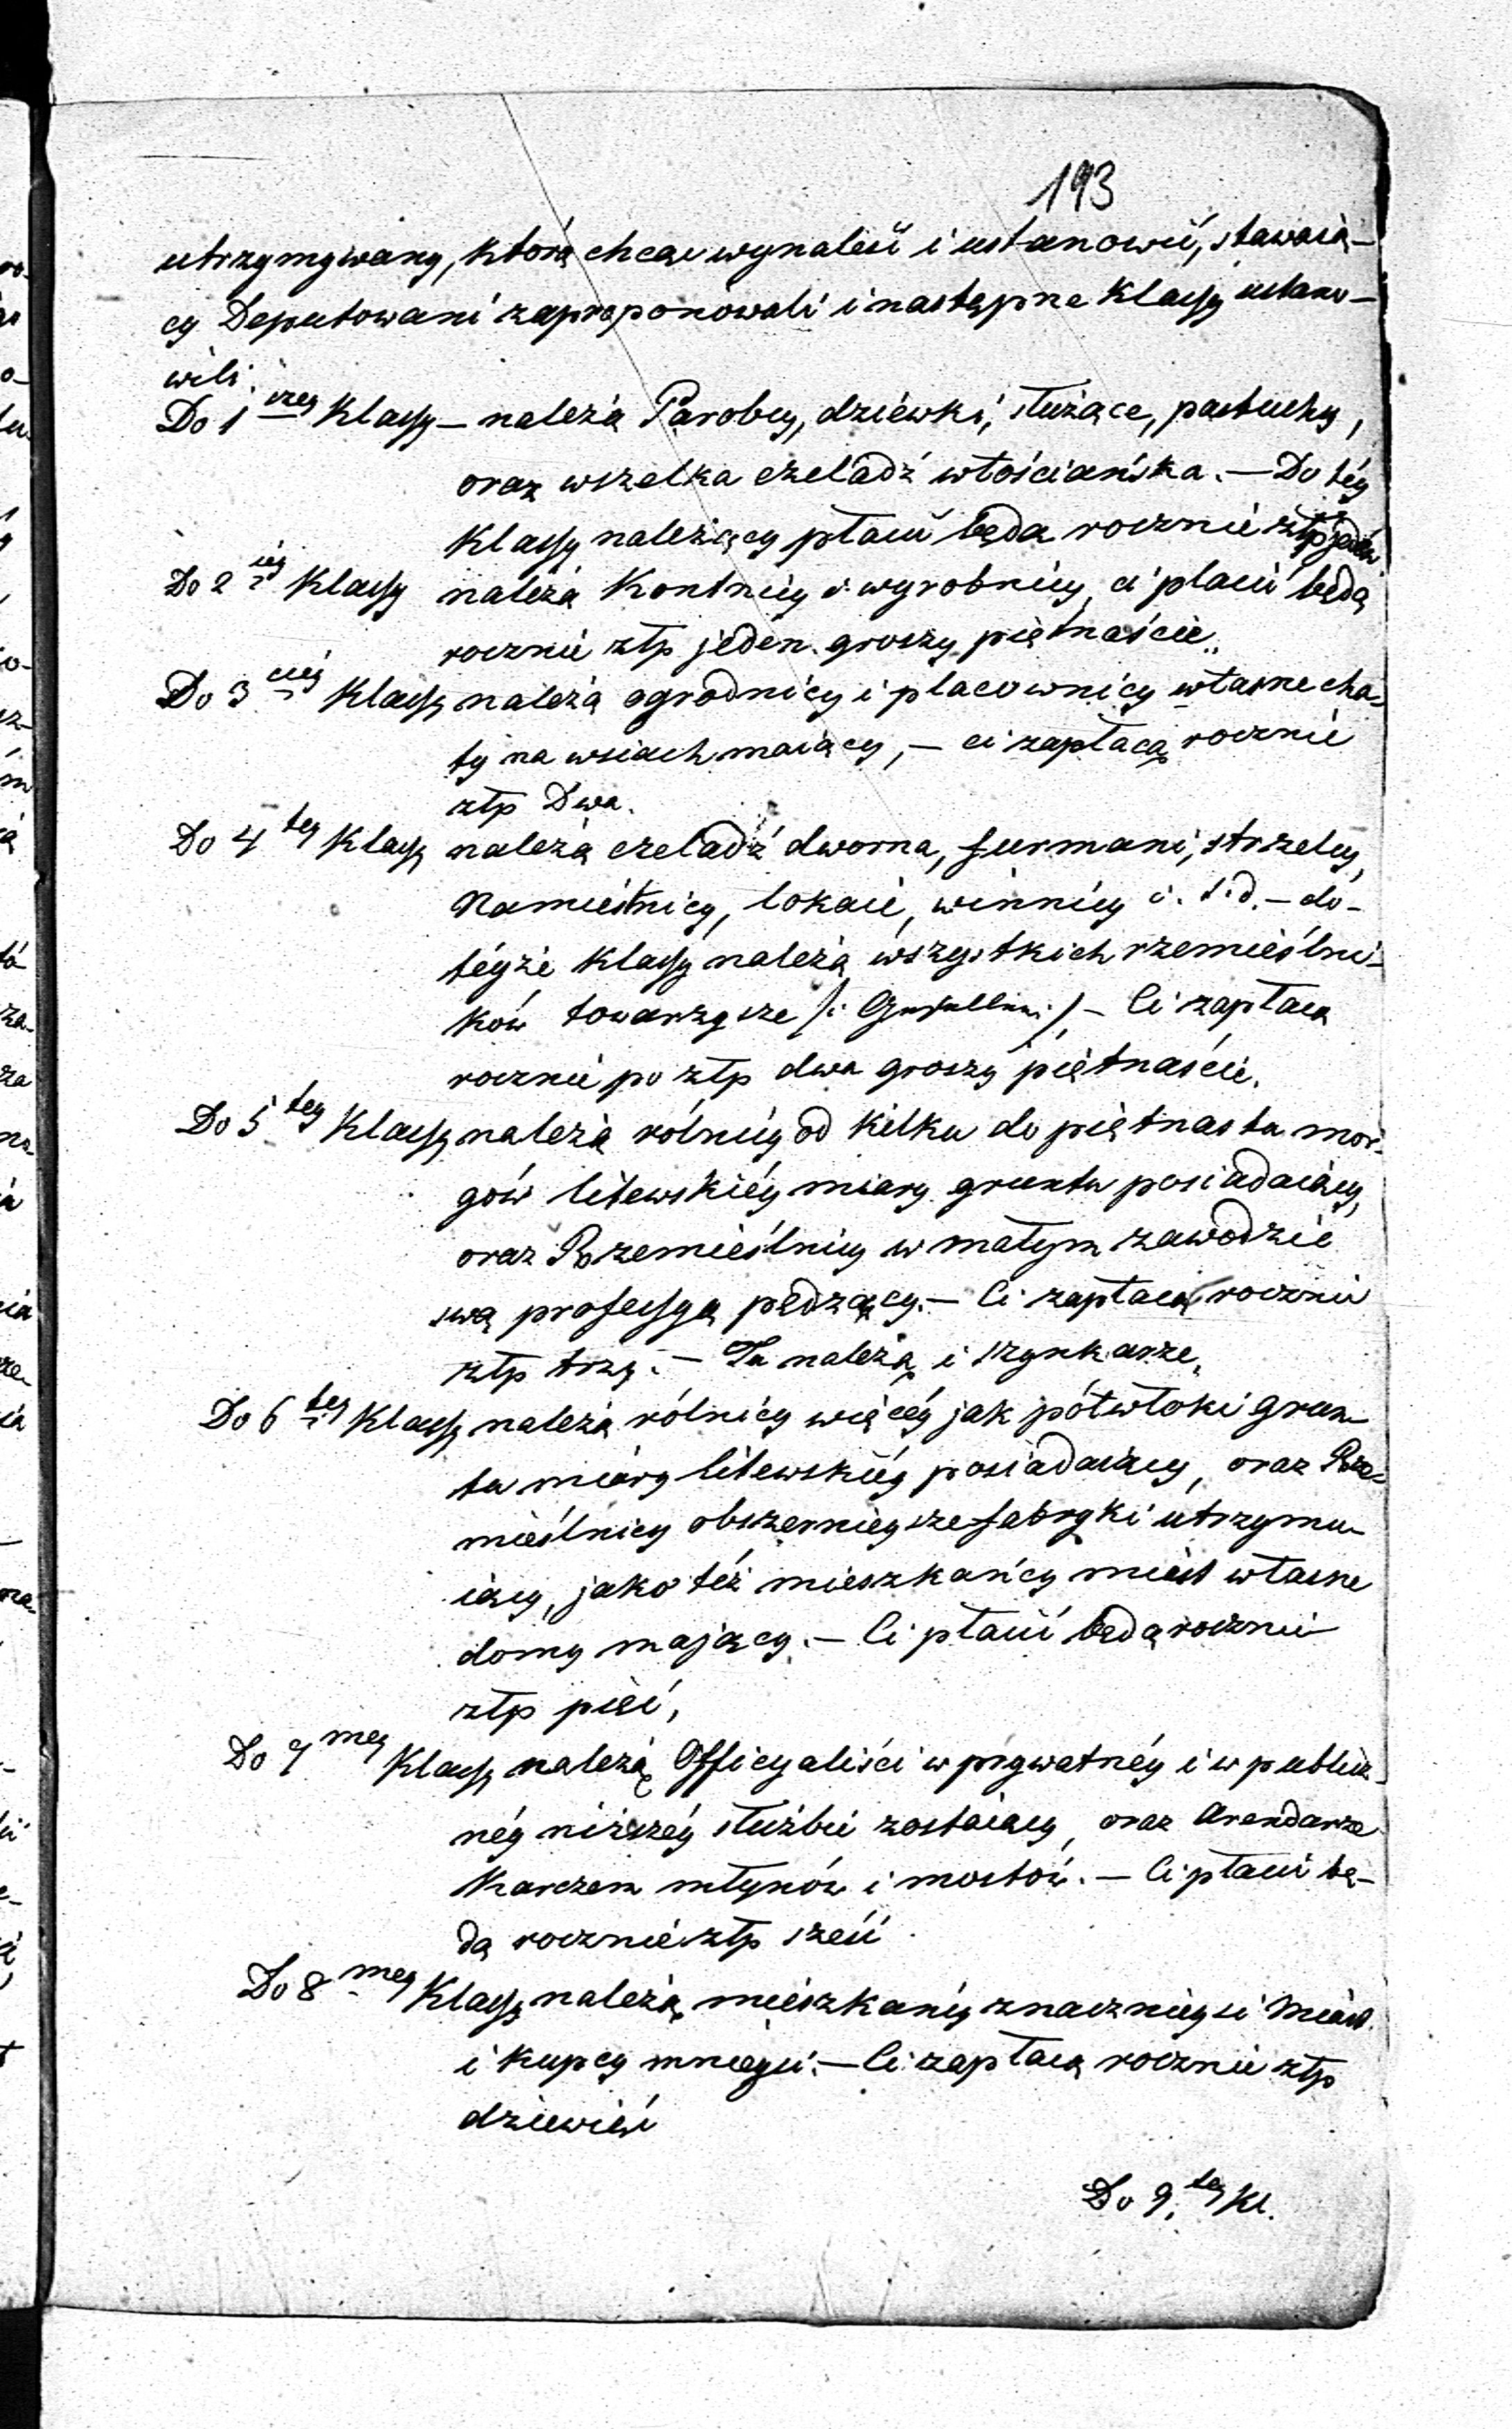 193
utrzymywany, którą chcąc wynaleść i ustanowić, stawaią-
cy Deputowani zaproponowali i następne Klassy ustano-
wili.
Do 1szey Klassy – należą Parobcy, dziewki, służące, pastuchy,
oraz wszelka czeladź włościańska. – Do téy
Klassy należący płacić będą rocznie złp jeden
Do 2iéy Klassy należą Kontnicy i wyrobnicy, ci płacić będą
rocznie złp jeden groszy piętnaście.
Do 3ciéy Klassy należą ogrodnicy i placownicy własne cha-
ty na wsiach maiący, – ci zapłacą rocznie
złp Dwa.
Do 4tey Klassy należą czeladź dworna, furmani, strzelcy,
Namiestnicy, lokaie, winnicy i. t. d. – do
téyże Klassy należą wszystkich rzemieślni-
ków towarzysze /: Gesellen :/ – Ci zapłacą
rocznie po złp dwa groszy piętnaście.
Do 5tey Klassy należą rólnicy od kilku do piętnastu mor-
gów litewskiéy miary gruntu posiadaiący,
oraz Rzemieślnicy w małym zawodzie
swą professyą pędzący. – Ci zapłacą rocznie
złp trzy. – Tu należą i szynkarze.
Do 6tey Klassy należą rólnicy więcéy jak półwłoki grun-
tu miary litewskiéy posiadaiący, oraz Rze-
mieślnicy obszernieysze fabryki utrzymu-
iący, jako téż mieszkańcy miast własne
domy mający. – Ci płacić będą rocznie
złp pięć,
Do 7mey Klassy należą Officyaliści w prywatnéy i w publicz-
néy niższéy służbie zostaiący, oraz Arendarze
Karczem młynów i mostów. – Ci płacić bę-
dą rocznie złp sześć.
Do 8mey Klassy należą mieszkańcy znacznieysi Miast
i kupcy mnieysi. – Ci zapłacą rocznie złp
dziewięć
Do 9.tey Kl.